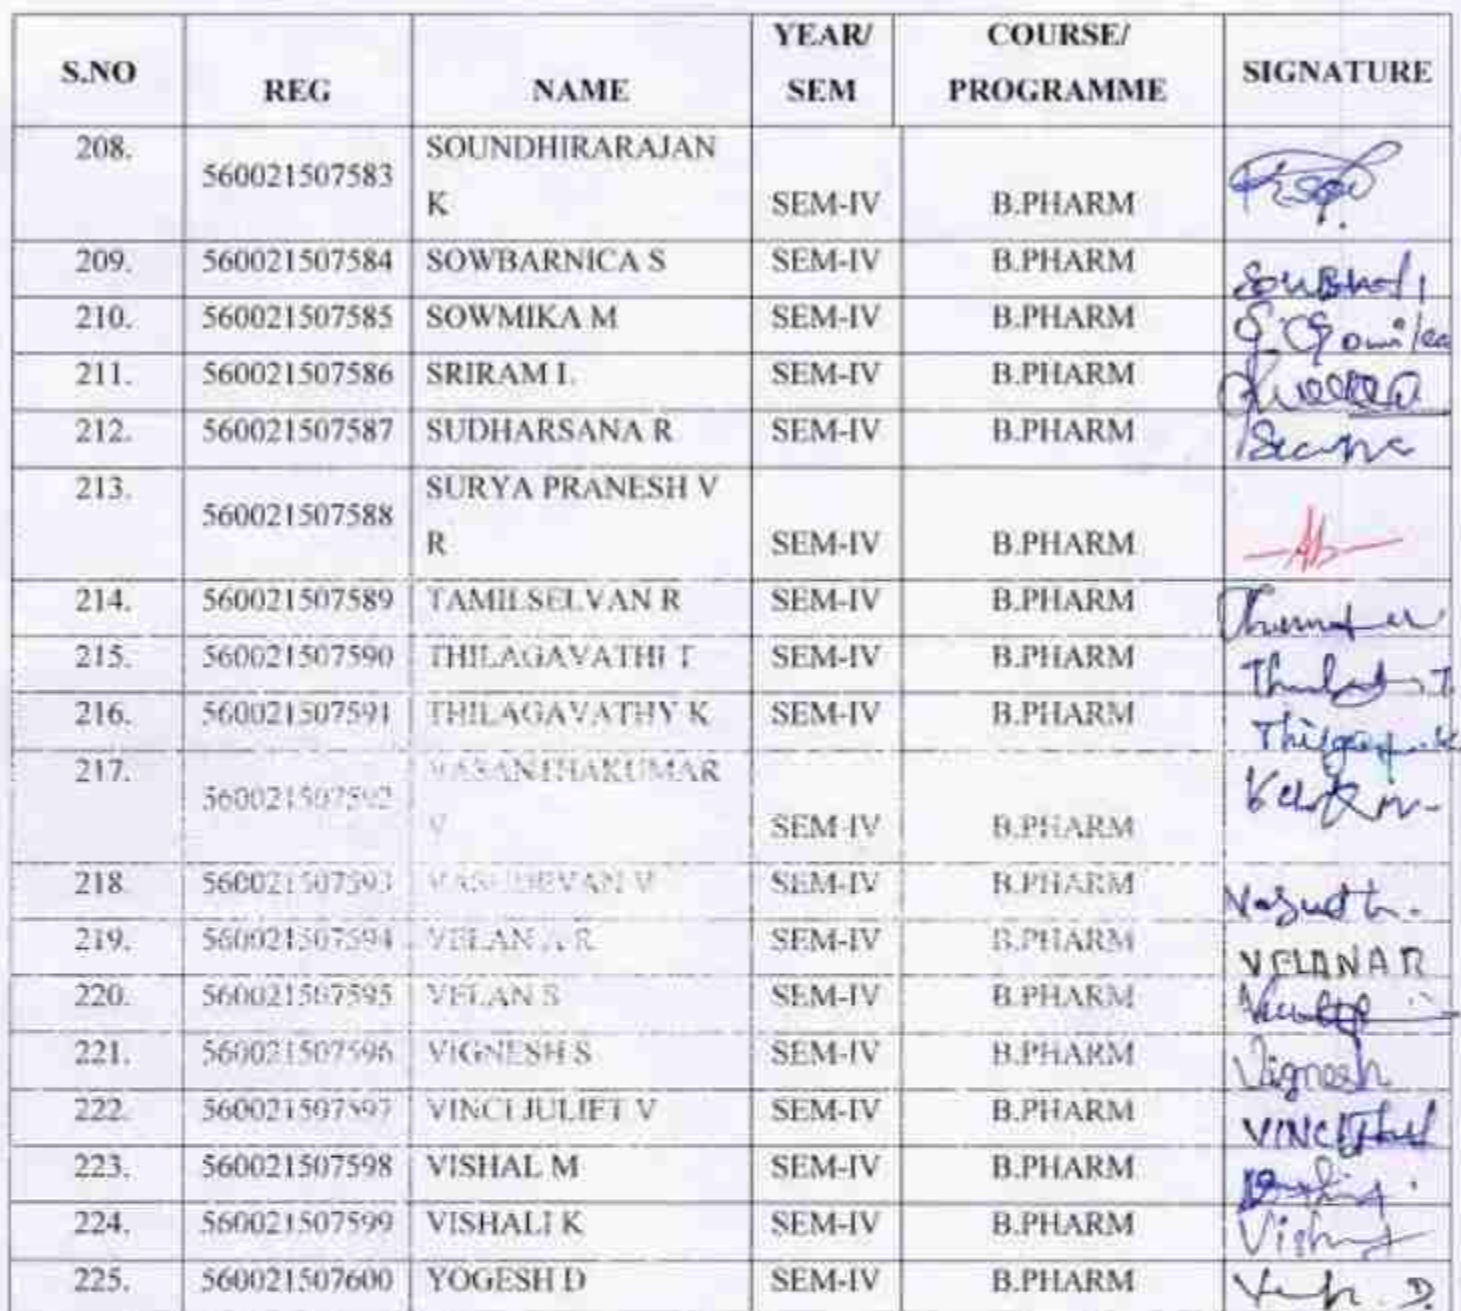 S.NO REG NAME YEAR/ SEM COURSE/ PROGRAMME SIGNATURE
208. 560021507583 SOUNDHIRARAJAN K SEM-IV B.PHARM
209. 560021507584 SOWBARNICA S SEM-IV B.PHARM
210. 560021507585 SOWMIKA M SEM-IV B.PHARM
211. 560021507586 SRIRAM L SEM-IV B.PHARM
212. 560021507587 SUDHARSANA R SEM-IV B.PHARM
213. 560021507588 SURYA PRANESH V R SEM-IV B.PHARM
214. 560021507589 TAMILSELVAN R SEM-IV B.PHARM
215. 560021507590 THILAGAVATHI T SEM-IV B.PHARM
216. 560021507591 THILAGAVATHY K SEM-IV B.PHARM
217. 560021507592 VASANTHAKUMAR V SEM-IV B.PHARM
218. 560021507593 VASUDEVAN V SEM-IV B.PHARM
219. 560021507594 VELAN A R SEM-IV B.PHARM VELANAR
220. 560021507595 VELAN S SEM-IV B.PHARM
221. 560021507596 VIGNESH S SEM-IV B.PHARM Vignesh
222. 560021507597 VINCI JULIET V SEM-IV B.PHARM
223. 560021507598 VISHAL M SEM-IV B.PHARM
224. 560021507599 VISHALI K SEM-IV B.PHARM
225. 560021507600 YOGESH D SEM-IV B.PHARM